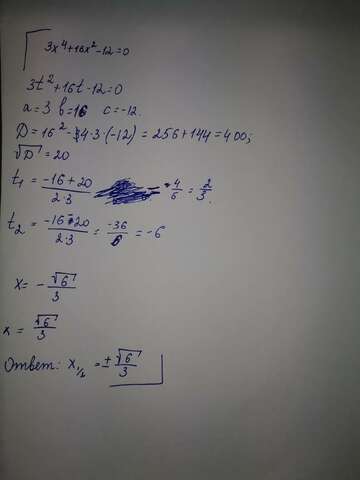 3x⁴+16x²-12=0
3t²+16t-12=0
a=3 b=16 c=-12.
D=16²-4·3·(-12)=256+144=400;
√D=20
t₁=(-16+20)/(2·3) = 4/6 = 2/3.
t₂=(-16-20)/(2·3) = -36/6 = -6
x= -√6/3
x= √6/3
Ответ: x₁/₂ = ±√6/3